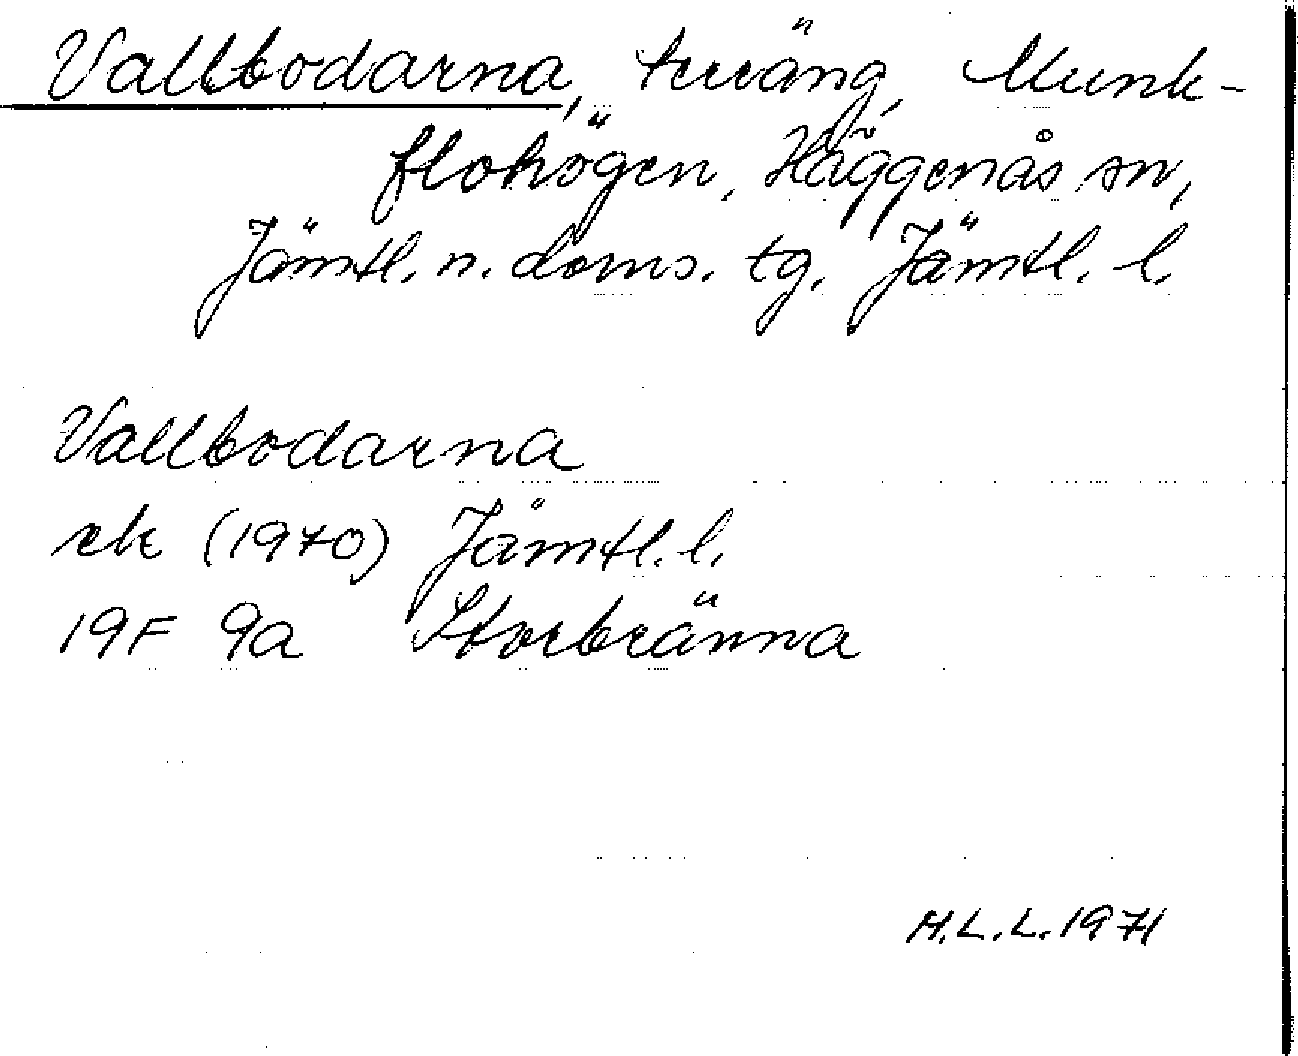 Vallbodarna, terräng, Munk-
flohögen, Häggenås sn,
Jämtl. n. doms. tg. Jämtl. l.
Vallbodarna
ek (1970) Jämtl. l.
19F 9a Storbränna
H.L.L. 1971